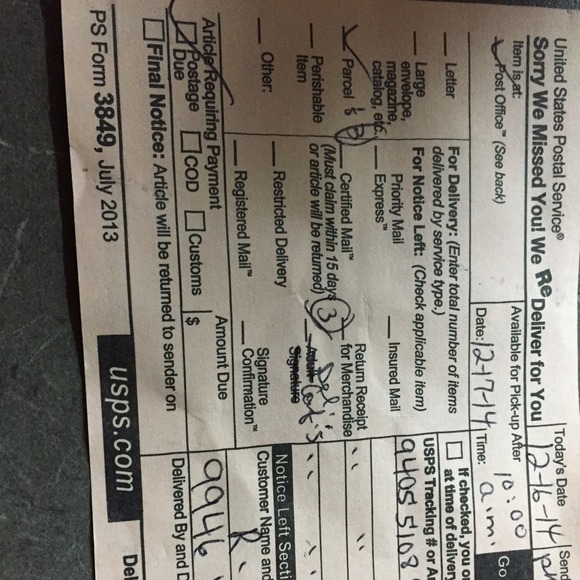 United States Postal Service®
Sorry We Missed You! We ReDeliver for You
Today's Date
12-16-14
Item is at:
Post Office™ (See back)
Available for Pick-up After
Date: 12-17-14 Time: 10:00 a.m.
Letter
Large envelope, magazine, catalog, etc.
Parcel
3
Perishable Item
Other:
For Delivery: (Enter total number of items delivered by service type.)
For Notice Left: (Check applicable item)
Priority Mail Express™
Insured Mail
Certified Mail™
(Must claim within 15 days or article will be returned)
3
Return Receipt for Merchandise
Restricted Delivery
Signature
Registered Mail™
Signature Confirmation™
If checked, you o
at time of deliver
USPS Tracking # or A
9405 5108
Notice Left Secti
Customer Name and
R.
Article Requiring Payment
Postage Due
COD
Customs
Amount Due
$
9946
Final Notice: Article will be returned to sender on
Delivered By and D
PS Form 3849, July 2013
usps.com
Del